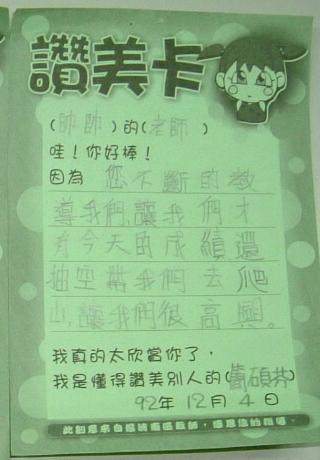 讚美卡
(帥帥)的(老師)
哇！你好棒！
因為 您不斷的教
導我們,讓我們才
有今天的成績還
抽空帶我們去爬
山,讓我們很高興。
我真的太欣賞你了，
我是懂得讚美別人的(碩芬)
92年12月4日